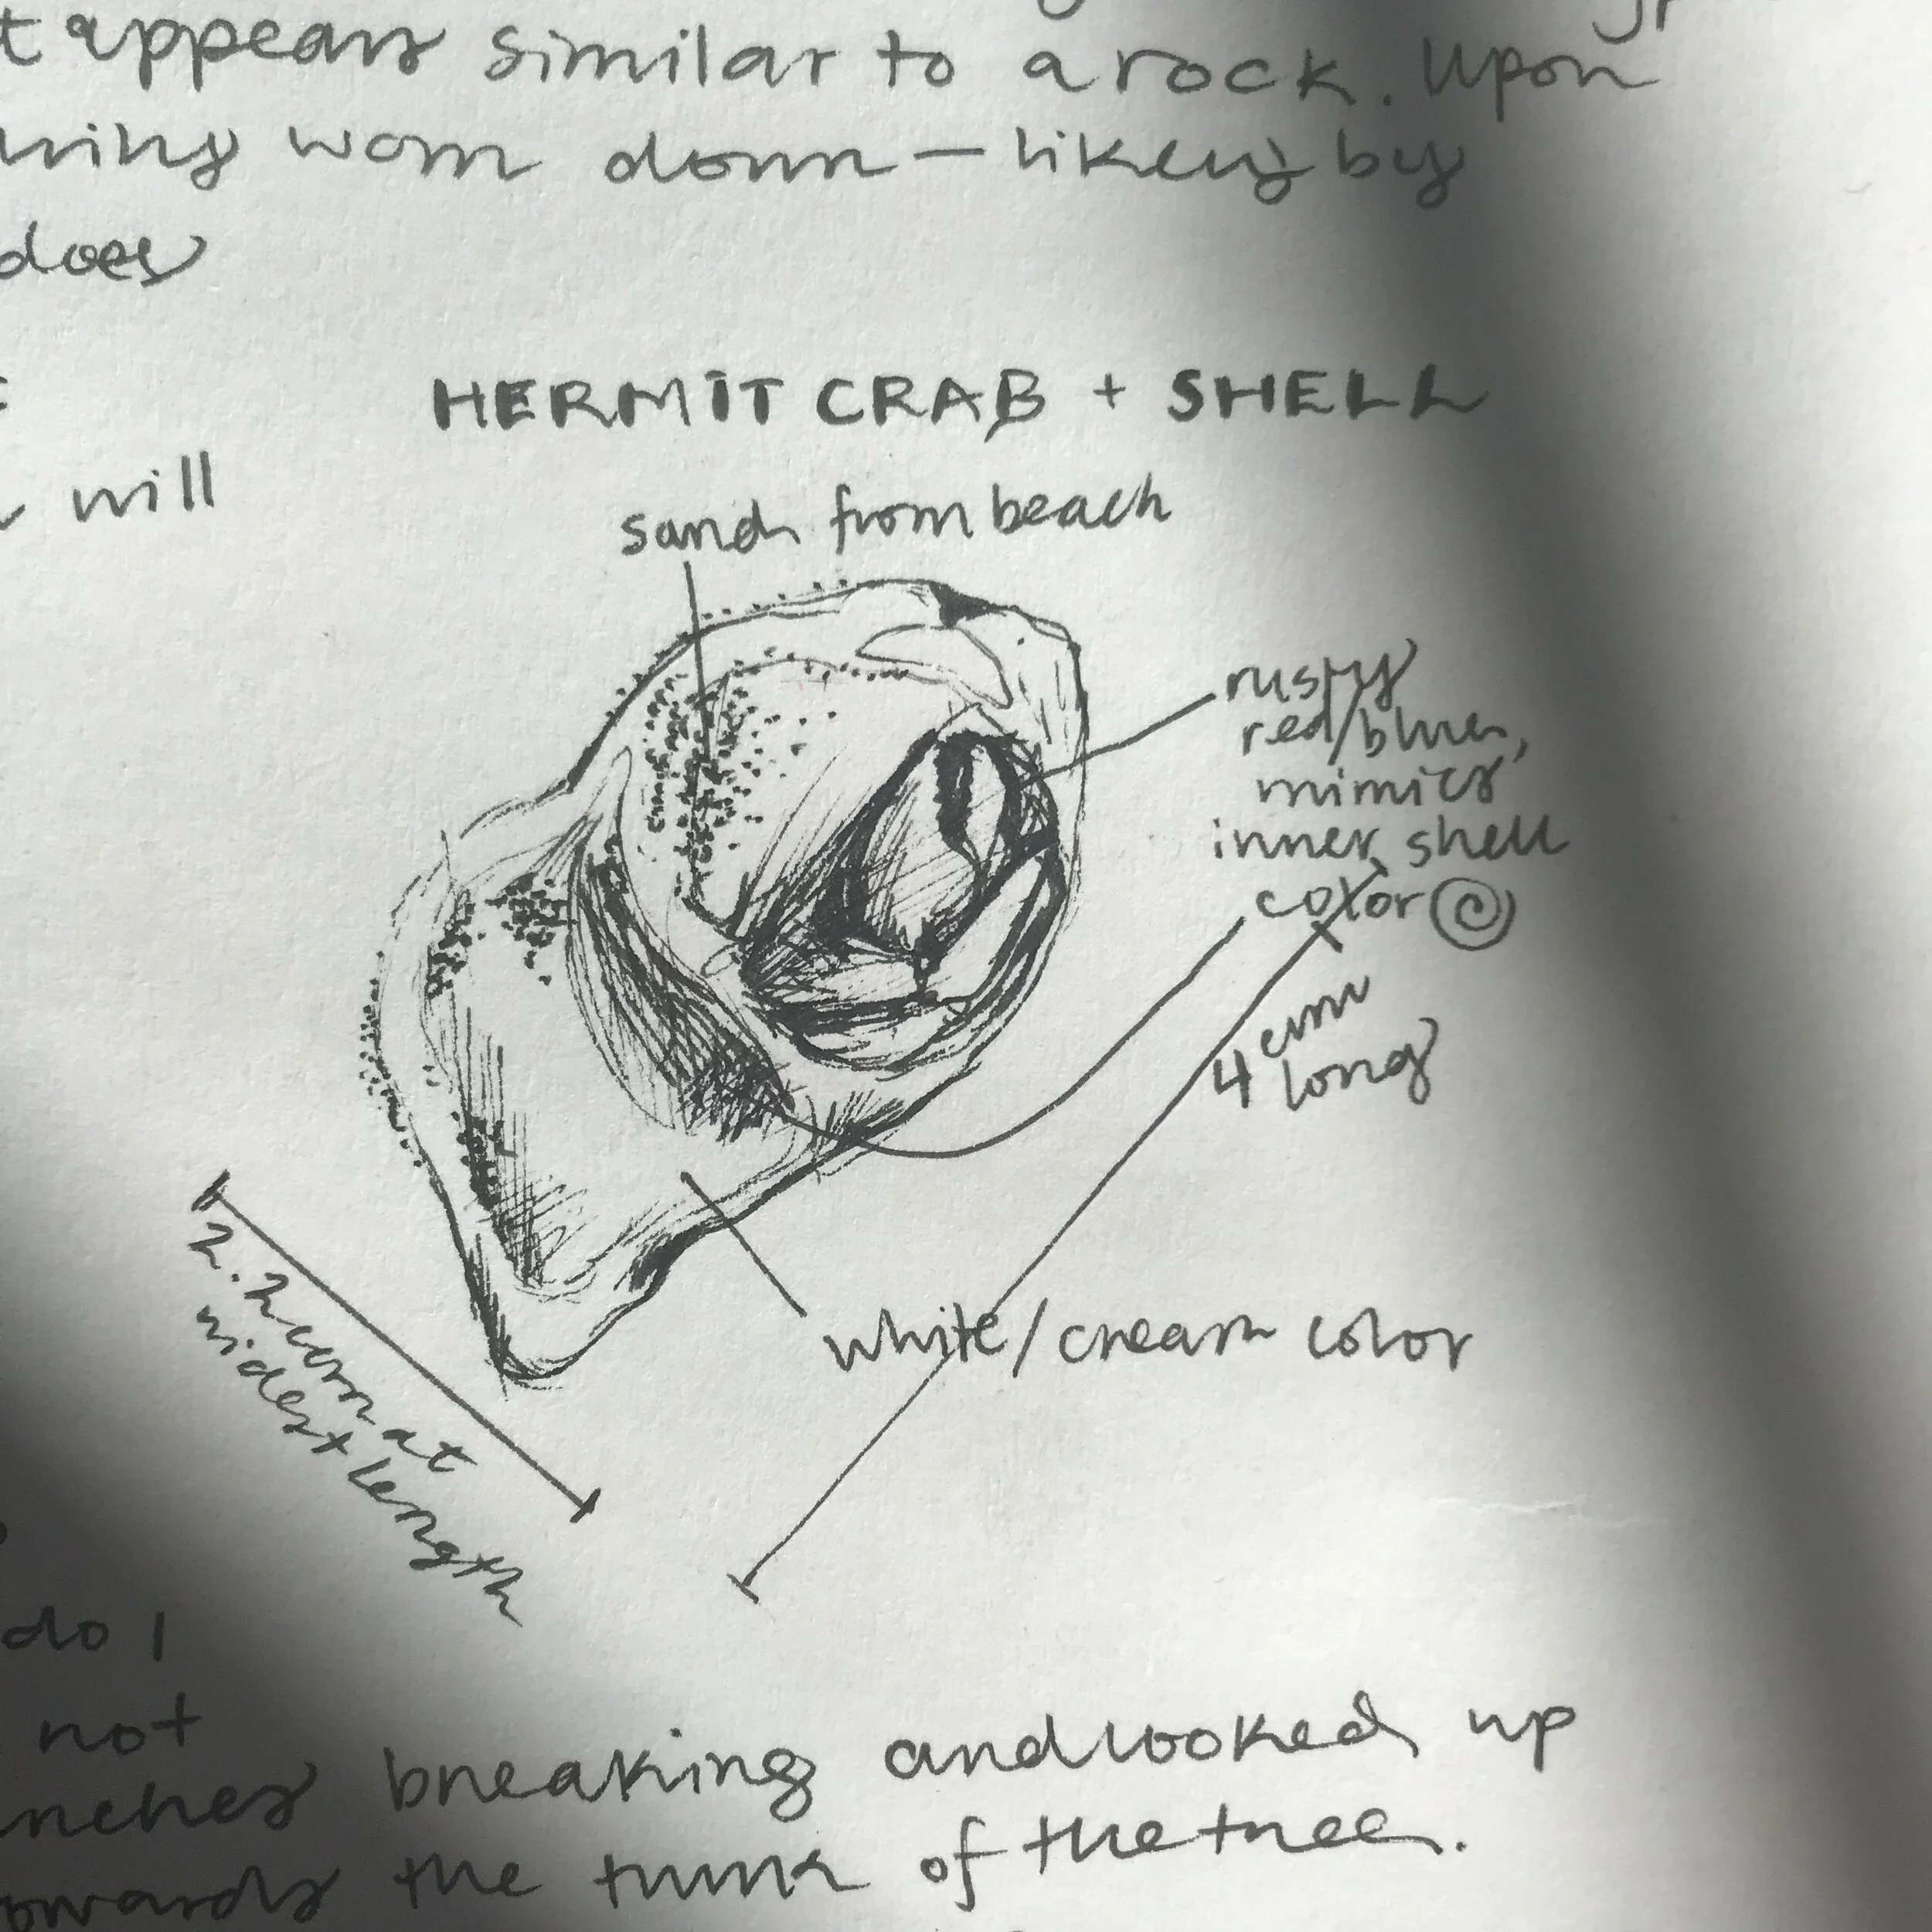 t appears similar to a rock. Upon
worn down – likely by
does
HERMIT CRAB + SHELL
will
sand from beach
rusty
red/blue,
mimics
inner shell
color
4 cm
long
white/cream color
2.2 cm at
widest length
do I
not
nches breaking and looked up
owards the trunk of the tree.